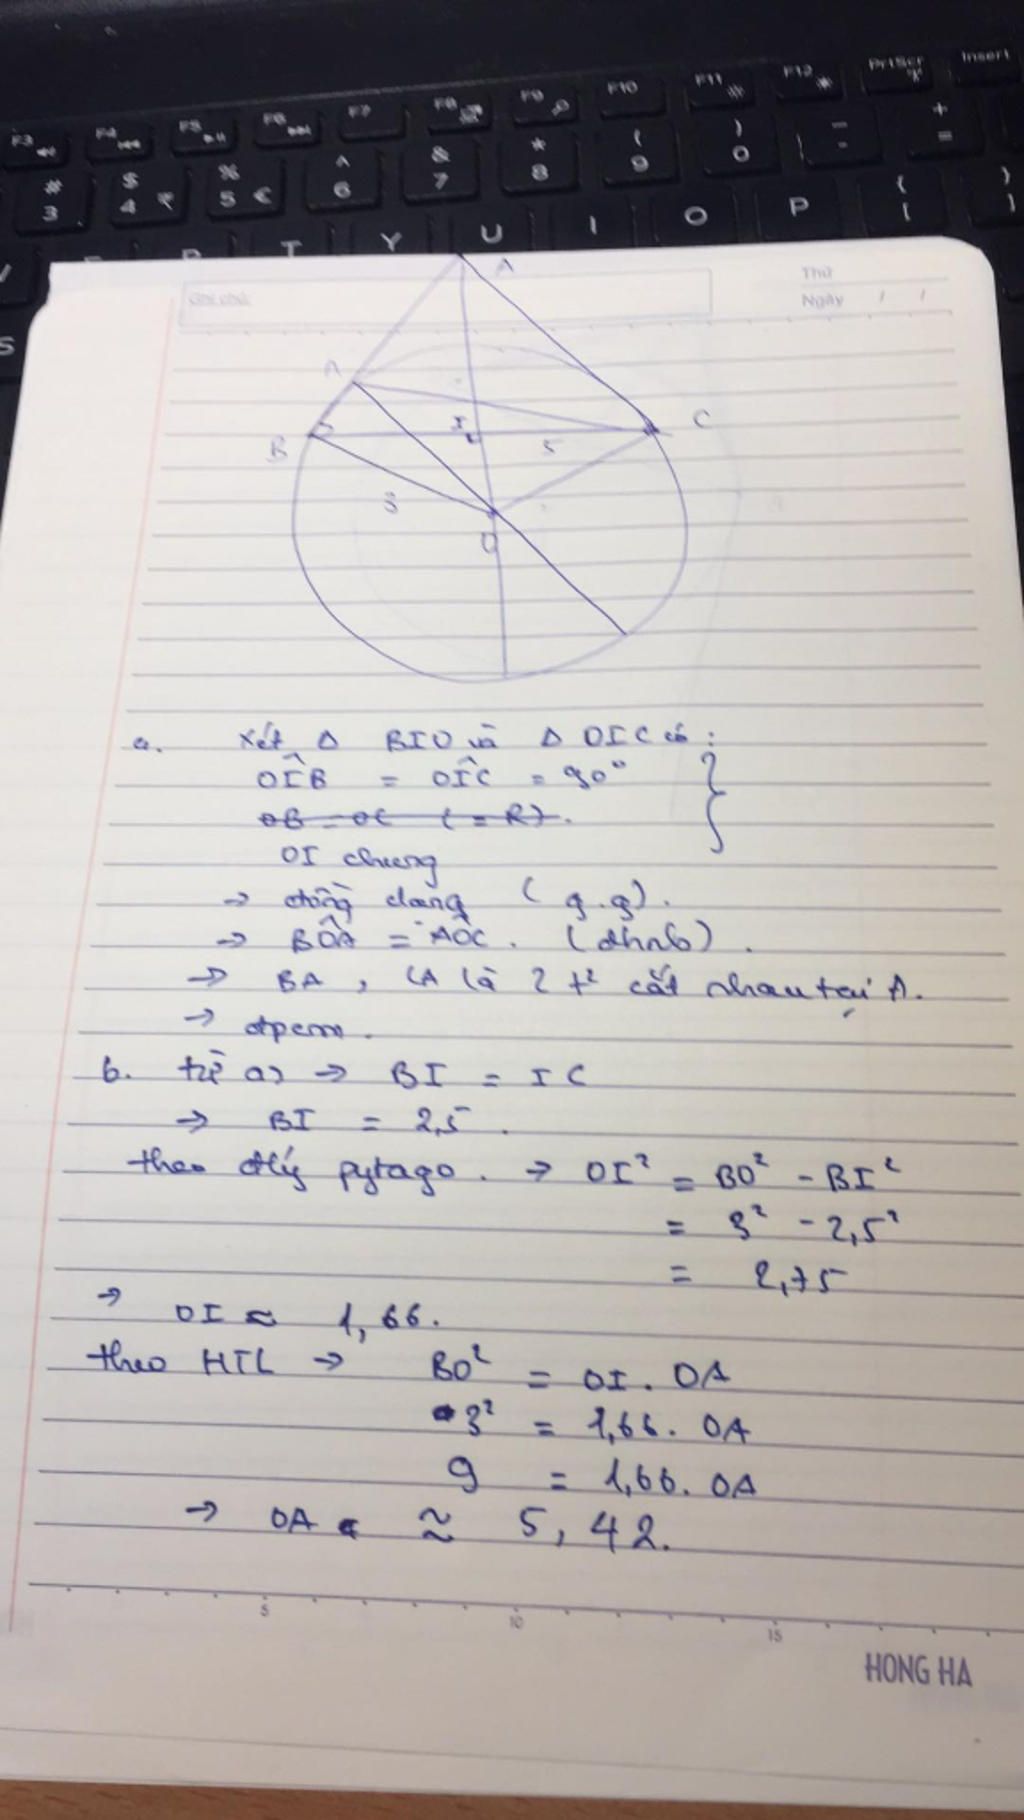 F3 F4 F5 F6 F7 F8 F9 F10 F11 F12 PrtScr Insert
# 3 $ 4 ₹ % 5 € ^ 6 & 7 * 8 ( 9 ) 0 - + =
T Y U I O P { [ } ]
S
Ghi chú:
Thứ
Ngày / /
A
A
B
I
C
5
3
O
a. Xét Δ BIO và Δ OIC có:
OÎB = OÎC = 90°
OB = OC (= R).
OI chung
→ đồng dạng (g.g).
→ BÔA = AÔC. (đhnb).
→ BA, CA là 2 t² cắt nhau tại A.
→ đpcm.
b. từ a) → BI = IC
→ BI = 2,5.
theo đlý pytago. → OI² = BO² - BI²
= 3² - 2,5²
= 2,75
→ OI ≈ 1,66.
theo HTL → BO² = OI. OA
3² = 1,66. OA
9 = 1,66. OA
→ OA ≈ 5,42.
5 10 15
HONG HA